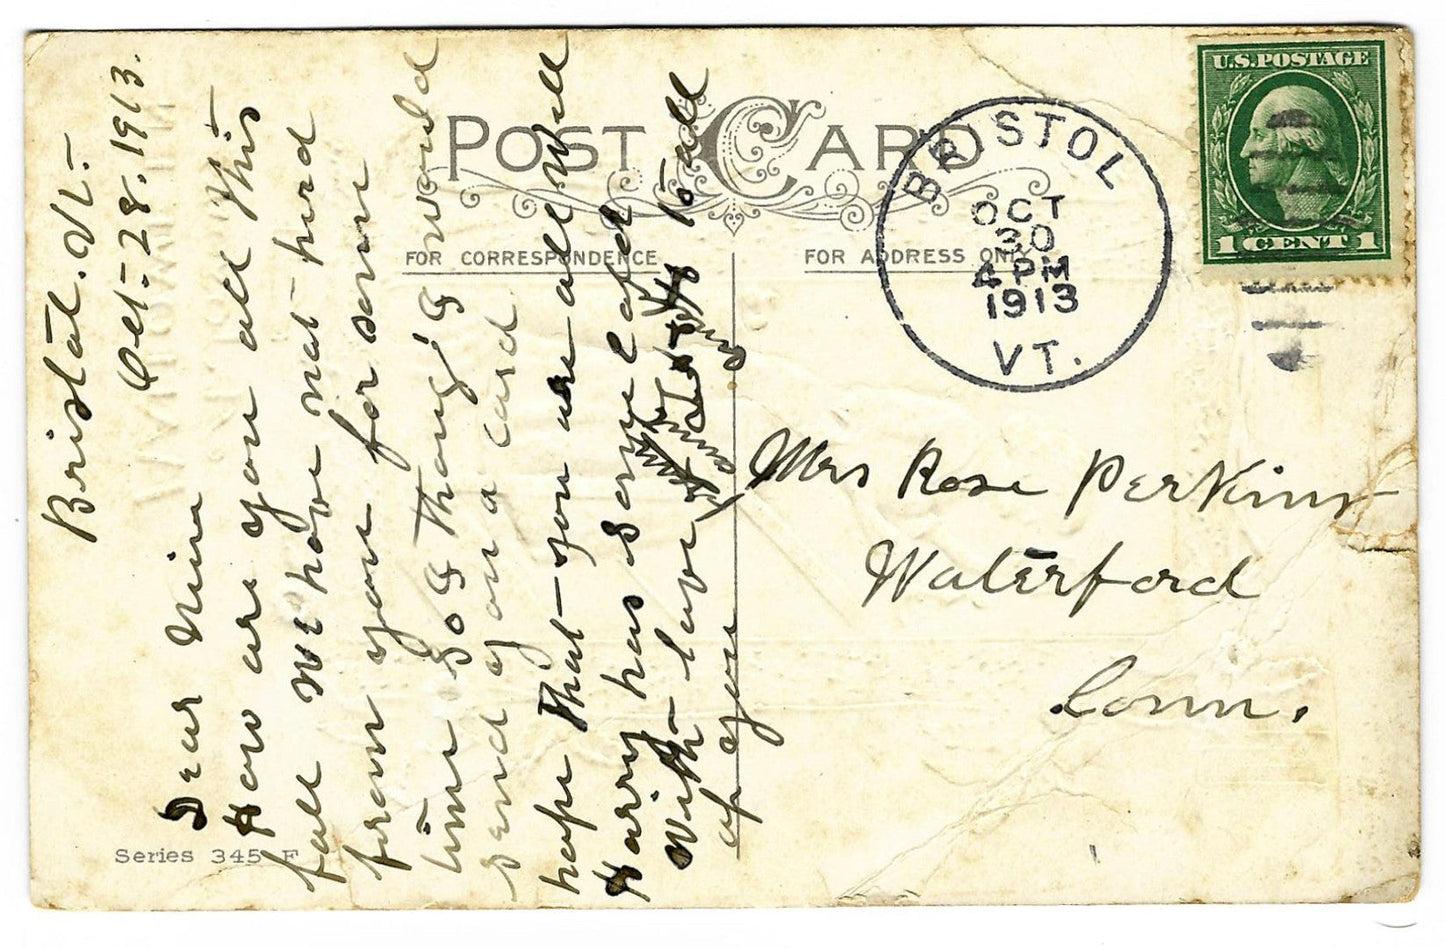 POST CARD
FOR CORRESPONDENCE
FOR ADDRESS ONLY
U.S.POSTAGE
1 CENT 1
BRISTOL
OCT
30
4 PM
1913
VT.
Bristol. Vt.-
Oct- 28. 1913.
Dear
How are you all this
fall We have not herd
from you for som
time So I thong't I would
send you a card
hope that you are all well
Harry has
With love to all
of you
Mrs Rose Perkins
Waterford
Conn.
Series 345 F